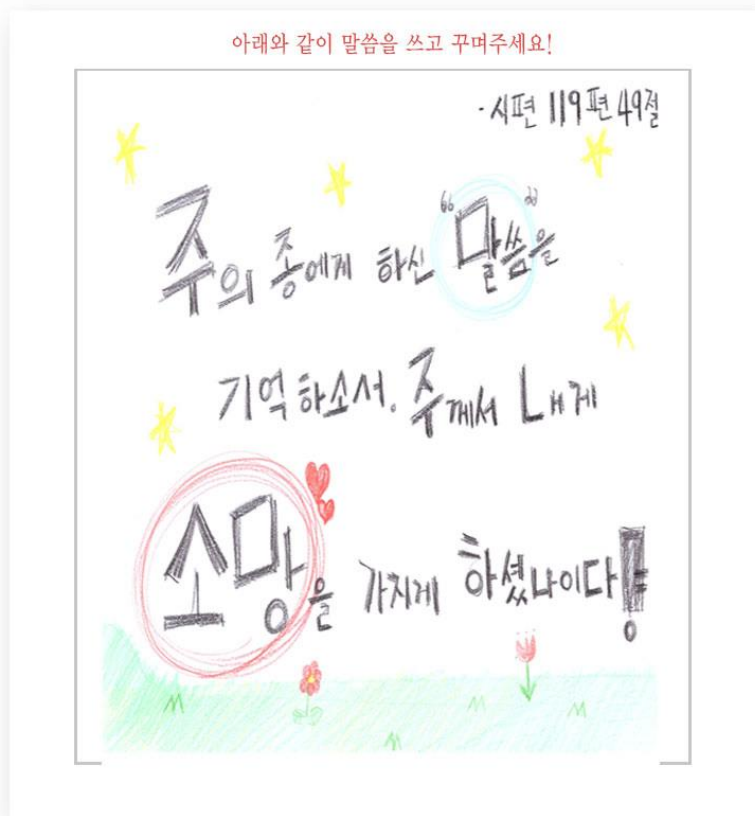 아래와 같이 말씀을 쓰고 꾸며주세요!
·시편 119편 49절
주의 종에게 하신 “말씀”을
기억하소서. 주께서 내게
소망을 가지게 하셨나이다!